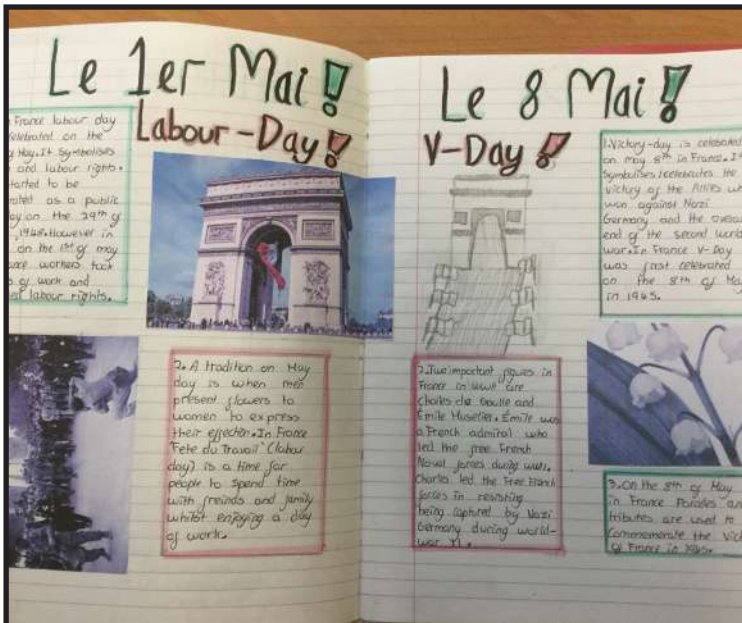 Le 1er Mai!
Labour-Day!
France labour day
celebrated on the
May. It Symbolises
and labour rights.
started to be
as a public
on the 29th of
1948. However in
on the 1st of may
workers took
of work and
labour rights.
2. A tradition on May
day is when men
present flowers to
women to express
their effection. In France
'Fete du Travail' (labour
day) is a time for
people to spend time
with freinds and family
whilst enjoying a day
of work.
Le 8 Mai!
V-Day!
1. Victory-day is celebrated
on may 8th in France. It
Symbolises/celebrates the
victory of the Allies
won against Nazi
Germany and the
end of the second world
war. In France V-Day
was first celebrated
on the 8th of May
in 1945.
2. Two important figures in
France in ww2 are
Charles de Gaulle and
Émile Muselier. Émile was
a French admiral who
led the free French
Naval forces during
Charles led the Free French
forces in resisting
being captured by Nazi
Germany during world-
war
3. On the 8th of May
in France Parades and
tributes are used to
Commemorate the
of France in 1945.